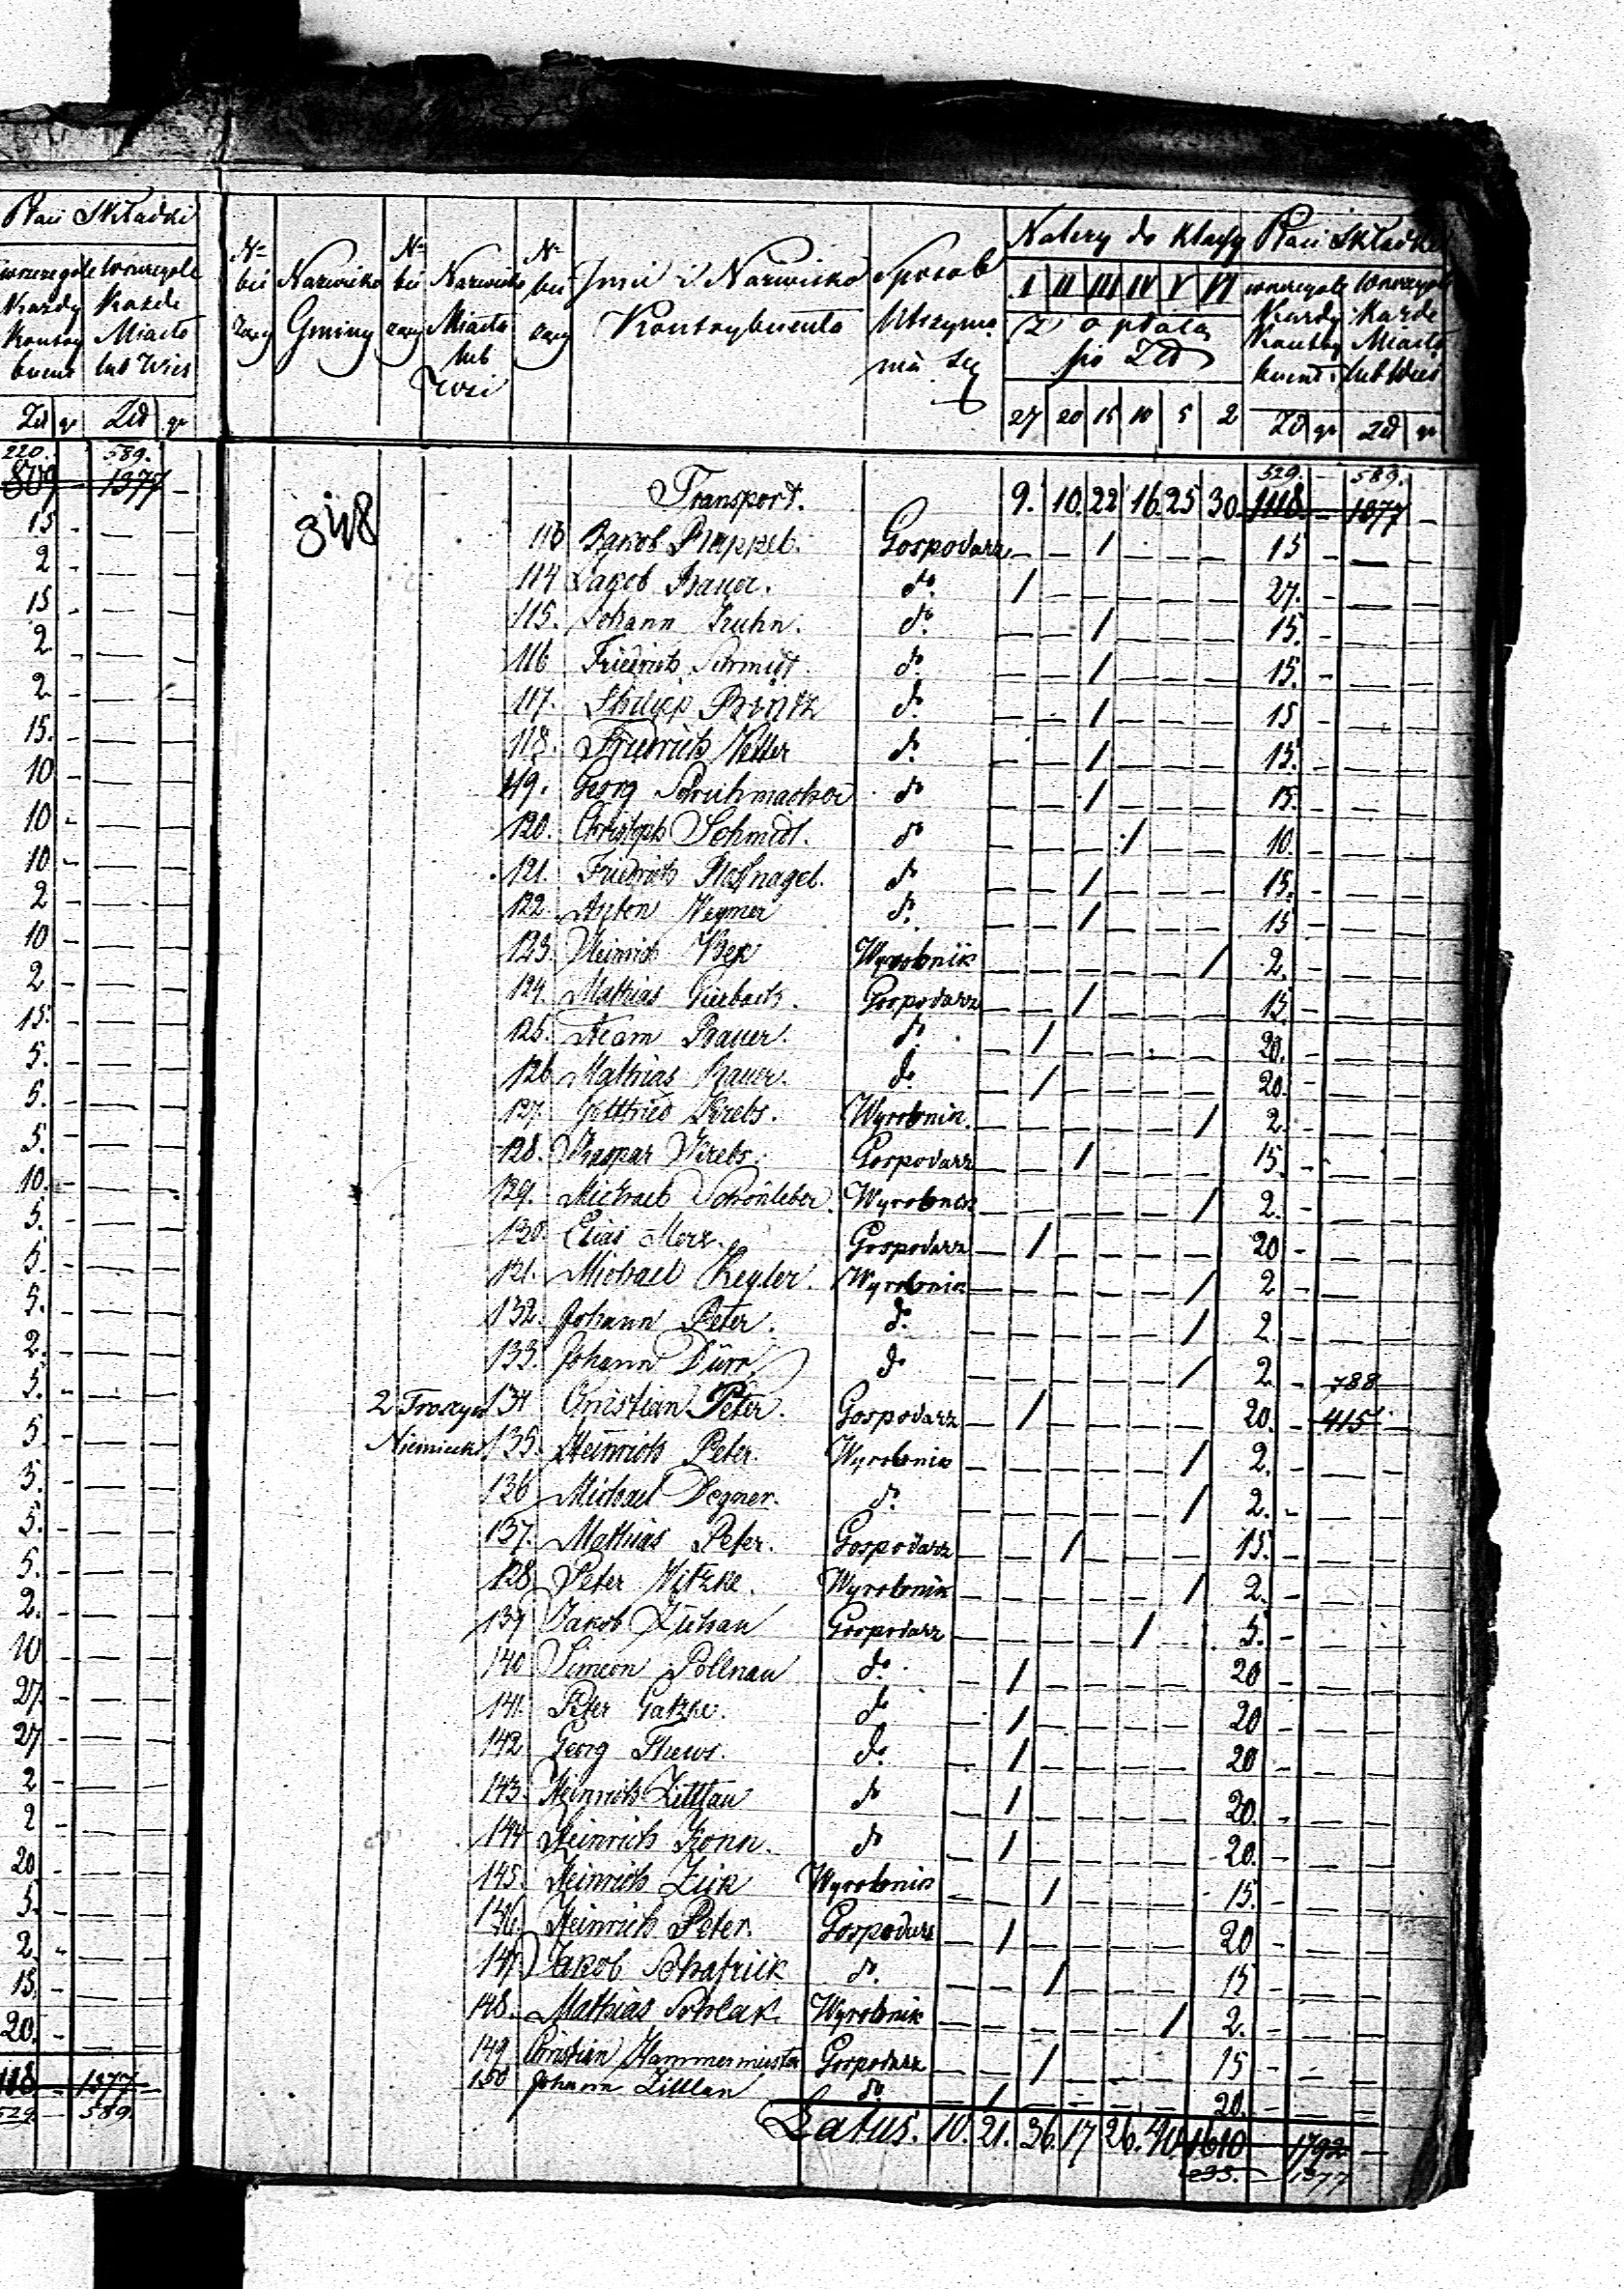 Płaci Składki
Zł gr Zł gr
220. 589.
809 - 1377 -
15 -
2 -
15 -
2 -
2 -
15. -
10 -
10 -
10 -
2 -
10 -
2 -
15. -
5. -
5. -
5. -
10. -
5. -
5 -
5. -
2. -
5. -
5 -
5. -
5. -
5. -
2. -
10 -
27 -
27 -
2 -
2 -
20 -
5. -
2. -
15. -
20. -
1118 - 1377 -
529 - 589.
Należy do klassy Płaci Składki
Nazwisko Gminy
Miasta lub Wsi
Imie i Nazwisko Kontrybuenta
Sposób Utrzyma nia się
I II III IV V VI
opłata po Zł
27 20 15 10 5 2 Zł gr Zł gr
348
529. - 589.
Transport. 9. 10. 22 16. 25 30. 1118. - 1377 -
113 Jakob Knappel. Gospodarz — — 1 15 -
114 Jakob Bauer. do. 1 — 27. -
115. Johann Kuhn. do. — — 1 15. -
116 Friedrich Schmidt. do — — 1 15. -
117. Philipp Printz do. — — 1 15 -
118. Friedrich Vetter do. — — 1 15. -
119. Georg Schuhmacher do — — 1 15. -
120. Christoph Schmidt. do — — — 1 10. -
121. Friedrich Hafnagel. do — — 1 15. -
122. Anton Wegner do. — — 1 15 -
123. Heinrich Bek Wyrobnik — — — — — 1 2. -
124. Mathias Gierbach. Gospodarz — — 1 15. -
125. Adam Bauer. do. — 1 20. -
126 Mathias Bauer. do. — 1 20. -
127. Gottfried Krebs. Wyrobnik. — — — — — 1 2. -
128. Kaspar Krebs. Gospodarz — — 1 15. -
129. Michael Schönleber. Wyrobnik — — — — — 1 2. -
130. Elias Merz. Gospodarz — 1 20 -
131. Michael Kegler. Wyrobnik — — — — — 1 2 -
132. Johann Peter. do. — — — — — 1 2. -
133. Johann Dürr do — — — — — 1 2. - 788
2 Troszyn 134 Christian Peter. Gospodarz — 1 20. - 415
Niemiecki 135. Heinrich Peter. Wyrobnik — — — — — 1 2. -
136 Michael Degner. do. — — — — — 1 2. -
137. Mathias Peter. Gospodarz — — 1 15. -
138 Peter Witzke. Wyrobnik — — — — — 1 2. -
139 Jakob Lichan Gospodarz — — — — 1 5. -
140 Simeon Pollnau do. — 1 20 -
141. Peter Gatzke. do — 1 20 -
142 Georg Thews. do. — 1 20 -
143. Heinrich Zittlau do — 1 20. -
144 Heinrich Konn. do — 1 20. -
145. Heinrich Zick Wyrobnik — — 1 15. -
146. Heinrich Peter. Gospodarz — 1 20 -
147 Jakob Schafrick do. — — 1 15 -
148. Mathias Schlak. Wyrobnik — — — — — 1 2. -
149 Christian Hammermeister Gospodarz — — 1 15 -
150 Johann Zittlau do. — 1 20. -
Latus. 10. 21. 36. 17 26. 40. 1610 - 1792 -
1377